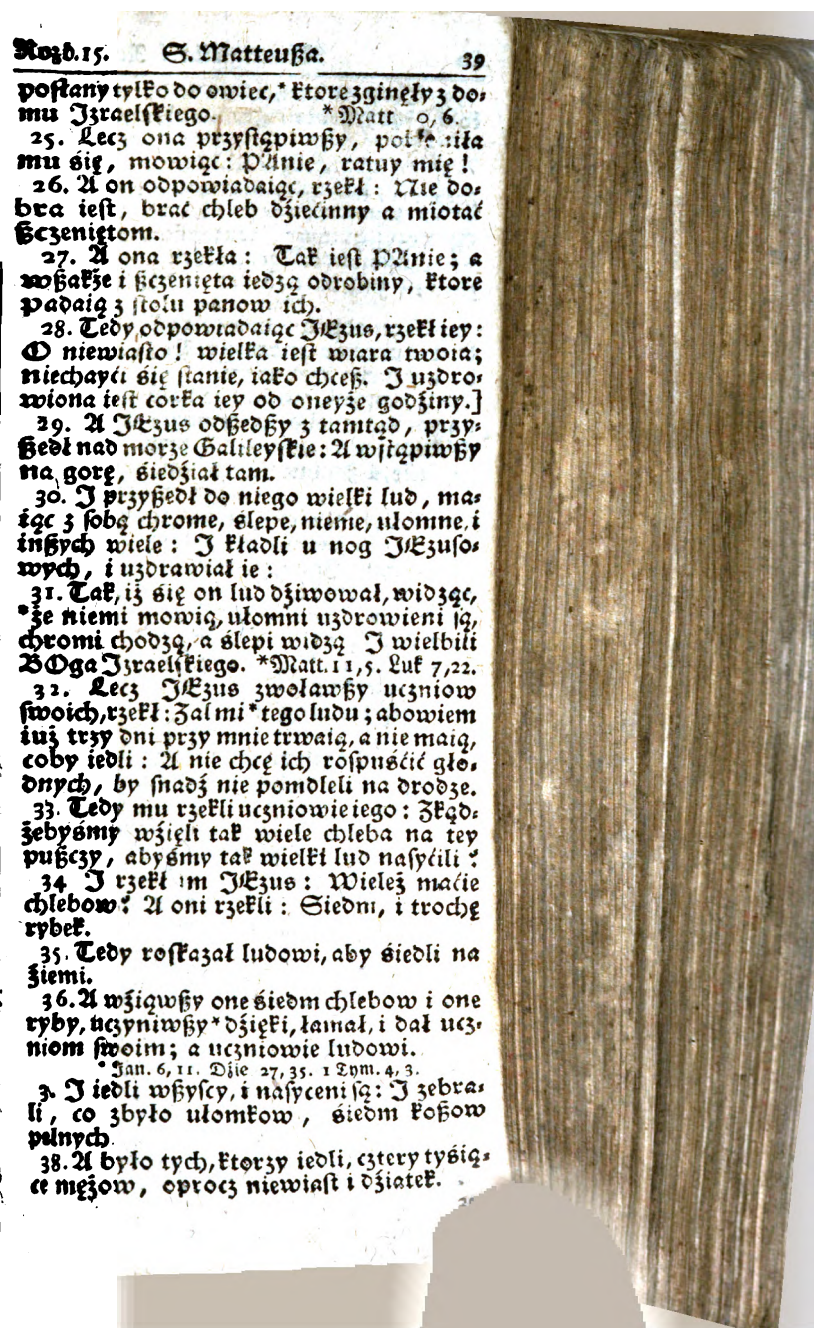 Rozd.15. S. Matteußa. 39
posłany tylko do owiec,* ktore zginęły z do⸗
mu Izraelskiego. * Matt 0, 6.
25. Lecz ona przystąpiwßy,
mu się, mowiąc: PAnie, ratuy mię!
26. A on odpowiadaiąc, rzekł: Nie do⸗
bra iest, brać chleb dźiećinny a miotać
ßczeniętom.
27. A ona rzekła: Tak iest PAnie; a
wßakże i ßczenięta iedzą odrobiny, ktore
padaią z stołu panow ich.
28. Tedy odpowiadaiąc JEzus, rzekł iey:
O niewiasto! wielka iest wiara twoia;
niechayći się stanie, iako chceß. I uzdro⸗
wiona iest corka iey od oneyże godźiny.]
29. A JEzus odßedßy z tamtąd, przy⸗
ßedł nad morze Galileyskie: A wstąpiwßy
na gorę, śiedźiał tam.
30. I przyßedł do niego wielki lud, ma⸗
iąc z sobą chrome, ślepe, nieme, ułomne, i
inßych wiele: I kładli u nog JEzuso⸗
wych, i uzdrawiał ie:
31. Tak, iż się on lud dźiwował, widząc,
*że niemi mowią, ułomni uzdrowieni są,
chromi chodzą, a ślepi widzą I wielbili
BOga Izraelskiego. *Matt. 11, 5. Luk 7, 22.
32. Lecz JEzus zwoławßy uczniow
swoich, rzekł: Żal mi * tego ludu; abowiem
iuż trzy dni przy mnie trwaią, a nie maią,
coby iedli: A nie chcę ich rospuśćić gło⸗
dnych, by snadź nie pomdleli na drodze.
33. Tedy mu rzekli uczniowie iego: Zkąd⸗
żebyśmy wźięli tak wiele chleba na tey
pußczy, abyśmy tak wielki lud nasyćili?
34 I rzekł im JEzus: Wieleż maćie
chlebow? A oni rzekli: Siedm, i trochę
rybek.
35. Tedy roskazał ludowi, aby śiedli na
źiemi.
36. A wźiąwßy one śiedm chlebow i one
ryby, uczyniwßy * dźięki, łamał, i dał ucz⸗
niom swoim; a uczniowie ludowi.
* Jan. 6, 11. Dźie 27, 35. 1 Tym. 4, 3.
3. I iedli wßyscy, i nasyceni są: I zebra⸗
li, co zbyło ułomkow, śiedm koßow
pełnych.
38. A było tych, ktorzy iedli, cztery tyśią⸗
ce mężow, oprocz niewiast i dźiatek.